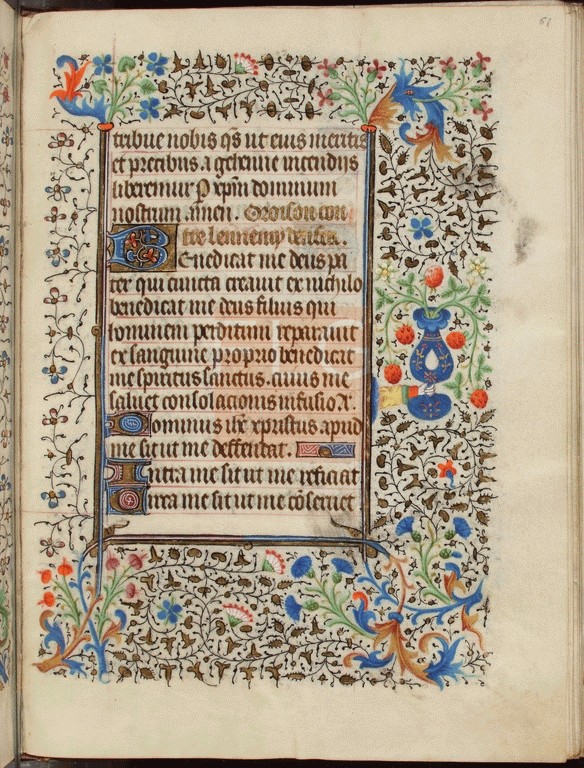 61
tribue nobis qs̄ ut eius meritis
et precibus. a gehenne incendijs
liberemur P xp̄m dominum
nostrum. amen. Oroison con
tre lennemp denfer.
Benedicat me deus pa
ter qui cuncta creauit ex nichilo
benedicat me deus filius qui
hominem perditum reparauit
ex sanguine proprio benedicat
me spiritus sanctus. cuius me
saluet consolacionis infusio A.
Dominus ih̄c xpristus apud
me sit ut me deffendat.
Intra me sit ut me reficiat
Circa me sit ut me cōseruet